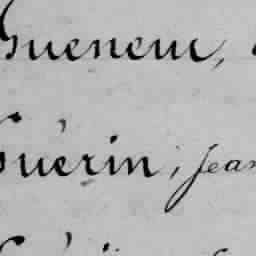 Guenem,
Guérin, Jean